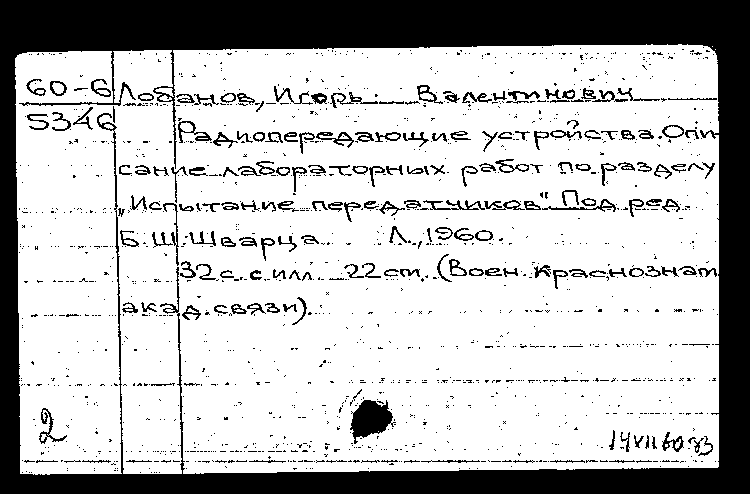 60-6 Лобанов, Игорь Валентинович
5346 Радиопередающие устройства. Опи-
сание лабораторных работ по разделу
„Испытание передатчиков". Под ред.
Б.Ш. Шварца. Л., 1960.
32 с. с илл. 22 ст. (Воен. краснознам.
акад. связи).
2
14 VII 60